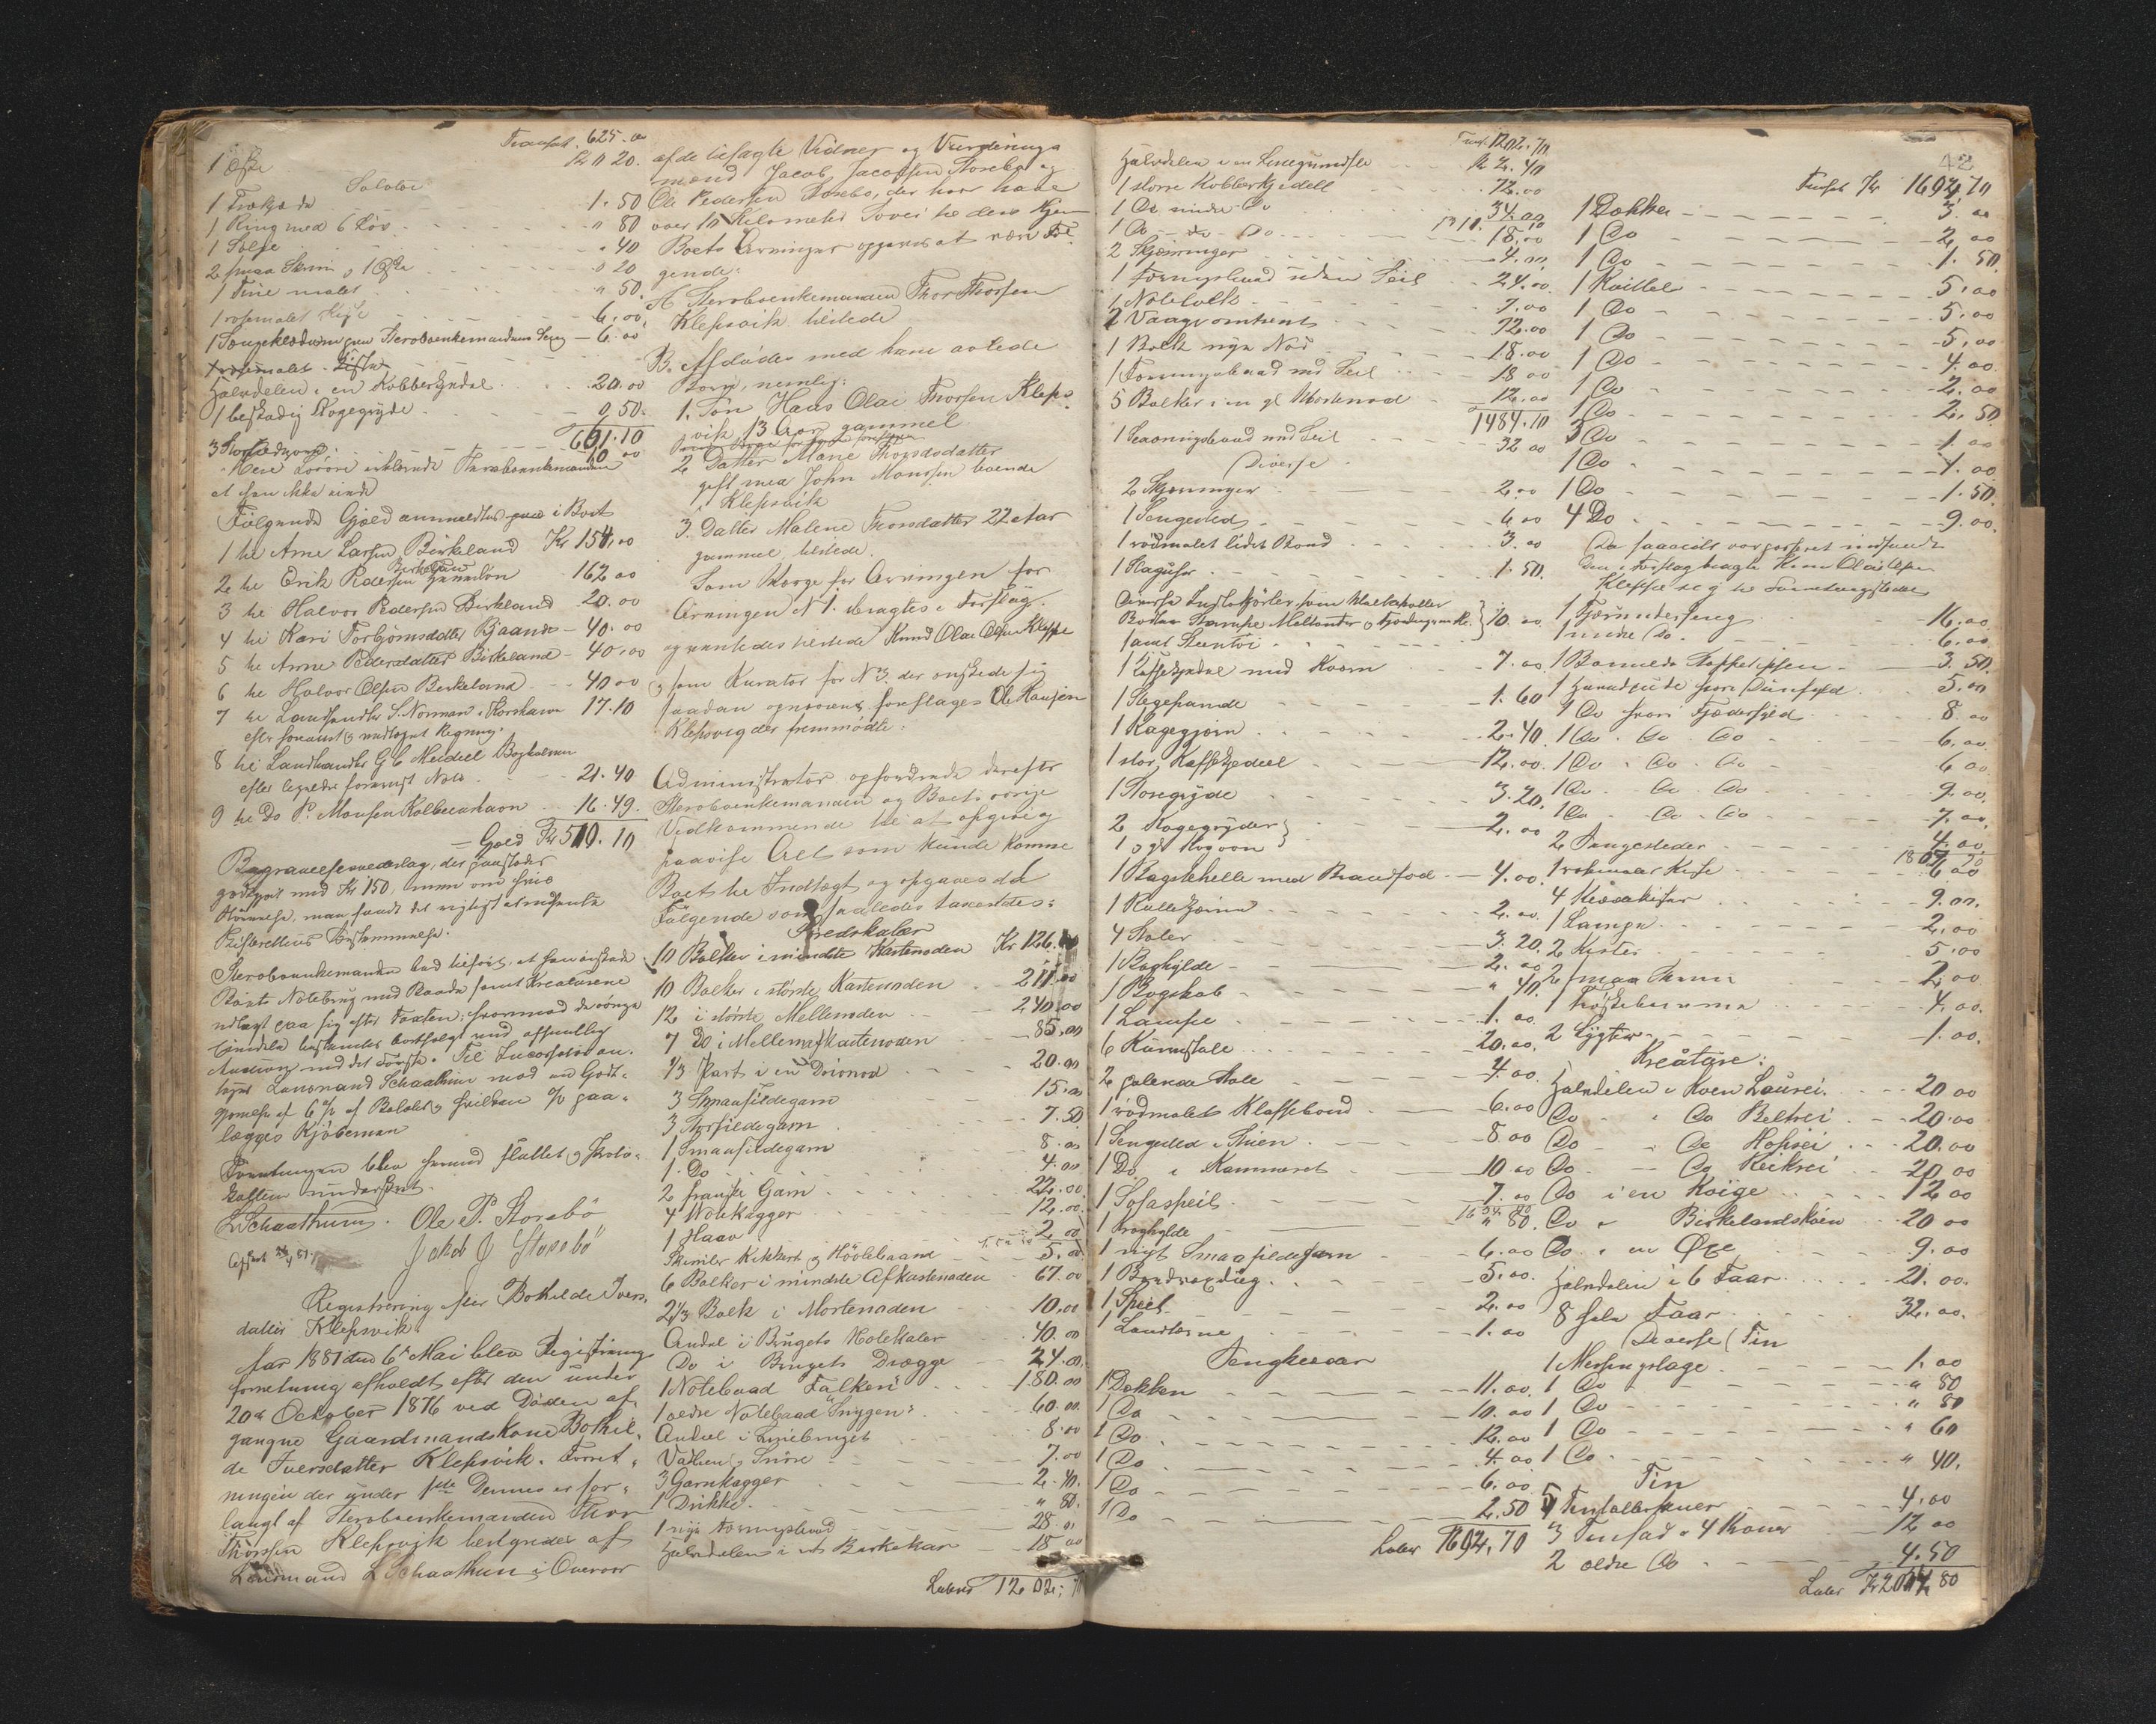 Transport 625.00
1 Øxe Kr 0 20.
1 50
1 Ring med 6 Løv " 80
1 Sølje " 40
2 smaa Skrin og 1 Øxe 0 20
1 Tine malet " 50.
1 rosemalet 6.00
1 Sengeklædning paa Sterboenkemandens Seng 6.00
Halvdelen i en Kobberkjedel 20.00
1 beskadig Kogegryde 0,50.
661.10
3 10 00
Mere Løsøre erklærede Sterboenkemanden
at han ikke eiede
Følgende Gjæld anmeldtes i Boet
1 til Arne Larsen Birkeland Kr 154,00
2 til Erik Pedersen Birkeland 162 00
3 til Halvor Pedersen Birkeland 20.00
4 til Kari Torbjørnsdatter Bjaanæs 40.00
5 til Anna Pedersdatter Birkeland 40.00
6 til Halvor Olsen Birkeland 40 00
7 til Landhandler S. Norman i Korshavn 17.10
efter foreviist og vedtaget Regning.
8 til Landhandler G C Meidell Bogholmen
efter ligeledes foreviist Nota 21.40
9 til Do P. Monsen Kolbeenshavn 16.49.
Gjæld Kr 510.10
Begravelsesvederlag, der paastodes
godtgjort med Kr 150, men om hvis
Størrelse, man fandt det rigtigst at indhente
Skifterettens Bestemmelse.
Sterboenkemanden bad tilført, at han ønskede
Boets Notebrug med Baade samt Kreaturene
udlagt paa sig efter Taxten; hvorimod de øvrige
Eiendele bestemtes bortsolgt ved offentlig
Auction ved det første. Til Incassator an-
toges Lensmand Schaathun mod en Godt-
gjørelse af 6 % af Beløbet, hvilken % paa-
lægges Kjøberen
Forretningen blev hermed sluttet og Proto-
kollen underskrevet.
LSchaathun. Ole P. Storebö
Jakob J Storebö
Registrering efter Bothilde Ivers-
datter Klepsvik.
Aar 1881 den 6te Mai blev Registrerings
forretning afholdt efter den under
20de October 1876 ved Døden af-
gangne Gaardmandskone Bothil-
de Iversdatter Klepsvik. Forret-
ningen der under 1ste Dennes er for-
langt af Sterboenkemanden Thor
Thorssen Klepsvik bestyredes af
Lensmand LSchaathun i Overvær
af de tilsagte Vidner og Vurderings
mænd Jacob Jacobsen Storebø og
Ole Pedersen Storebø, der har have
over 10 Kilometer Sovei til deres Hjem
Boets Arvinger opgaves at være Føl-
gende:
A Sterboenkemanden Thor Thorsen
Klepsvik tilstede
B. Afdødes med ham avlede
Børn, nemlig:
1. Søn Hans Olai Thorsen Kleps-
vik 13 Aar gammel
2 Datter Marie Thorsdatter
gift med John Monssen boende
i Klepsvik
3. Datter Malene Thorsdatter 22 Aar
gammel, tilstede.
Som Værge for Arvingen for
Arvingen N 1. bragtes i Forslag
og var tilstede Knud Olai Olsen Kleppe
og som Kurator for N 3. der ønskede sig
saadan opnævnt foreslages Ole Hansen
Klepsvig der fremmødte:
Administrator opfordrede derefter
Sterboenkemanden og Boets øvrige
Vedkommende til at opgive og
paavise Alt som kunde komme
Boet til Indtægt og opgaves da
Følgende som saaledes taxertes:
Firedskaber
10 Bolker i mindste Kastenoden Kr 126.00
10 Bolker i største Kastenoden 211.00
12 i største Mellemnoden 240.00
7 Do i Mellemafkastenoden 85,00
1/3 Part i en Dorgnod 20.00
3 Smaasildegarn 15.00
3 Storsildegarn 7.50
1 Smaasildegarn 8.00
1 Do 4.00
2 franske Garn 22.00
4 Notekagger 12.00
1 Haav 2,00
Skimler Kikkert og Höölebaand 5.00
6 Bolker i mindste Afkastenoden 67.00
2 1/3 Bolk i Mortenoden 10.00
Andel i Brugets Notekabler 40.00
Do i Brugets Drægge 24.00
1 Notebaad "Falken" 180.00
1 ældre Notebaad "Snygen" 60.00
Andeel i Linebruget 8.00
Vaben og Snöre 7.00
3 Garnkagger 2.40.
1 Drikke " 80.
1 nyt Formigsbaad 28.00
Halvdelen i et Barkekar 18.00
Lateris 1202.70
42
Transp. 1202.70
Halvdelen i en Linegrundsle Kr 2.40
1 større Kobberkjedell 72.00
1 Do mindre Do 34.00
1 Do - do - Do 1310.10 18.00
2 Skjæringer 4.00
1 Formigsbaad uden Seil 24.00
1 Notebolk 7.00
2 Vaageomhent 72.00
1 Bolk nye Nod 18.00
1 Formigsbaad med Seil 18 00
5 Bolker i en gl Mortenod 12.00
1484.10
1 Sexoringsbaad med Seil 32 00
Diverse
2 Skjæringer 2.00
1 Sengested 6 00
1 rödmalet lidet Bord 3.00
1 Slaguhr 1.50.
Diverse Indbokjörler, som Melkekoller
10.00
1 Kaffekjedel med Kvern 7.00
1 Stegepande 1.60
1 Kagejern 2.40
1 stor Kaffekjedel 12.00
1 Storegryde 3.20.
2 Kogegryder 2.00
1 Bagstehelle med Brandfod 4.00.
1 Rullehjerne 2.00
4 Stoler 3.20
1 Boghylde 2.00
1 Bogskab " 40.
1 Lampe 1.00
6 Rumstole 20.00.
2 galende Stole 4.00
1 rödmalet Klaffebord 6.00
1 Sengested i Stuen 8.00
1 Do i Kammeret 10 00
1 Sofaspeil 7.00
1 Roghylde " 80.
1 nyt Smaasildegarn 6.00
1 5.00.
1 Speil 2.00
1 Landterne 1.00
Sengklæder
1 Dækken 11.00.
1 Do 10.00
1 Do 12.00
1 Do 4.00
1 Do 6.00
1 Do 2.50
Later 1692.70
Transpt Kr 1692,70
1 Dækken 3.00
1 Do 2,00
1 Do 1.50.
1 Kvittel 5,00
1 Do 5.00
1 Do 5,00
1 Do 4.00
1 Do 2.00
1 Do 2.50
3 Do 1.00
1 Do 1.00
1 Do 1.50
4 Do 9.00.
Da saavidt var passeret indfandt
den i Forslag bragte Knud Olai Olsen
Kleppe sig til Forretningsstedet
1 Fjærunderseng 16.00
1 mindre Do. 6.00
1 3.50
1 Hovedpude hvori Duunfyld 5.00
1 Do hvori Fjæderfyld 8.00
1 Do Do Do 6.00
1 Do Do Do 6.00
1 Do Do Do 9.00
1 Do Do Do 7.00.
2 Sengesteder 4.00
1 Kiste 6.00
4 9.00.
1 Lampe 2.00
2 Kister 5.00
2 smaa Skrin 2,00
1 4.00.
2 Lygter 1.00.
Kreature:
Halvdelen i Koen Laurei 20 00
Do i Do Beltrei 20.00
Do i Do Hofrei 20.00
Do Do Reikrei 20.00
Do i en Kvige 12 00
Do " Birkelandskoen 20 00
Do i en Øxe 9.00
Halvdelen i 6 Faar 21.00.
8 hele Faar 32.00.
Diverse (Tin
1 Messingstage 1.00
1 Do " 80
1 Do " 80
1 Do " 60
1 Do " 40.
Tin
5 Tintallerkner 4.00
3 Tinfad a 4 Kroner 12 00
2 ældre Do 4.50